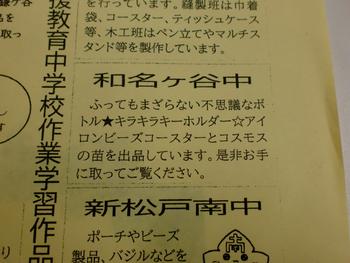 を行っています。縫製班は巾着
袋、コースター、ティッシュケース
等、木工班はペン立てやマルチス
タンド等を製作しています。
和名ヶ谷中
ふってもまざらない不思議なボ
トル★キラキラキーホルダー☆アイ
ロンビーズコースターとコスモス
の苗を出品しています。是非お手
に取ってご覧ください。
新松戸南中
ポーチやビーズ
製品、バジルなどを
援教育中学校作業学習作品